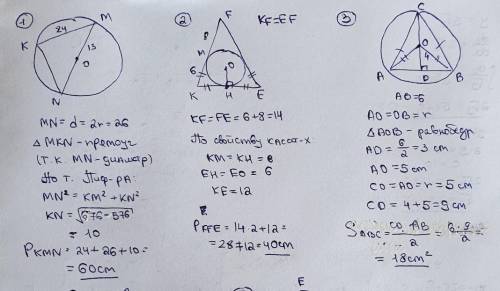 1
K
24
M
13
O
N
MN = d = 2r = 26
△ MKN - прямоуг
(т.к. MN - диаметр)
По т. Пиф-ра:
MN² = KM² + KN²
KN = √676-576
= 10
PKMN = 24 + 26 + 10 =
= 60см
2
F
KF=EF
8
M
O
6
K
H
E
KF = FE = 6+8 = 14
По свойству касат-х
KM = KH = 6
EH = EO = 6
KE = 12
= 14·2 + 12 =
= 28+12 = 40см
3
C
O
4
A
D
B
AB = 6
AO = OB = r
△ AOB - равнобедр
AD = 6/2 = 3 см
AO = 5 см
CO = AO = r = 5 см
CD = 4+5 = 9 см
SABC = CD·AB/2 = 6·9/2 =
= 18см²
E